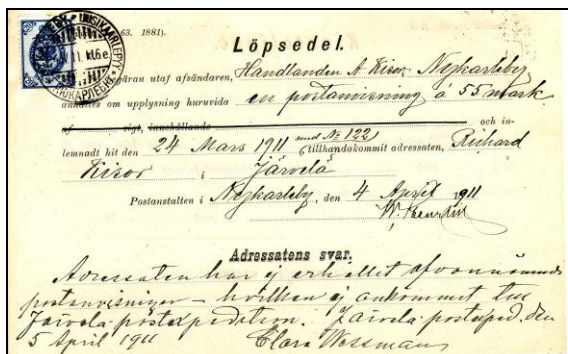 63. 1881).
UUSIKAARLEPYY
НЮКАРЛЕБИ
Löpsedel.
utaf afsändaren, Handlanden A Kisor Nykarleby
anhålles om upplysning huruvida en postanvisning á 55 mark
af vigt, innehållande och in-
lemnadt hit den 24 Mars 1911 med No 122, tillhandakommit adressaten, Richard
Kisor i Järvelä
Postanstalten i Nykarleby, den 4 April 1911
Adressatens svar.
Adressaten har ej erhållit ofvannämnda
postanvisningen – hvilken ej ankommit till
Järvelä postexpedition. Järvelä postexped. den
5 April 1911 Clara Wessman